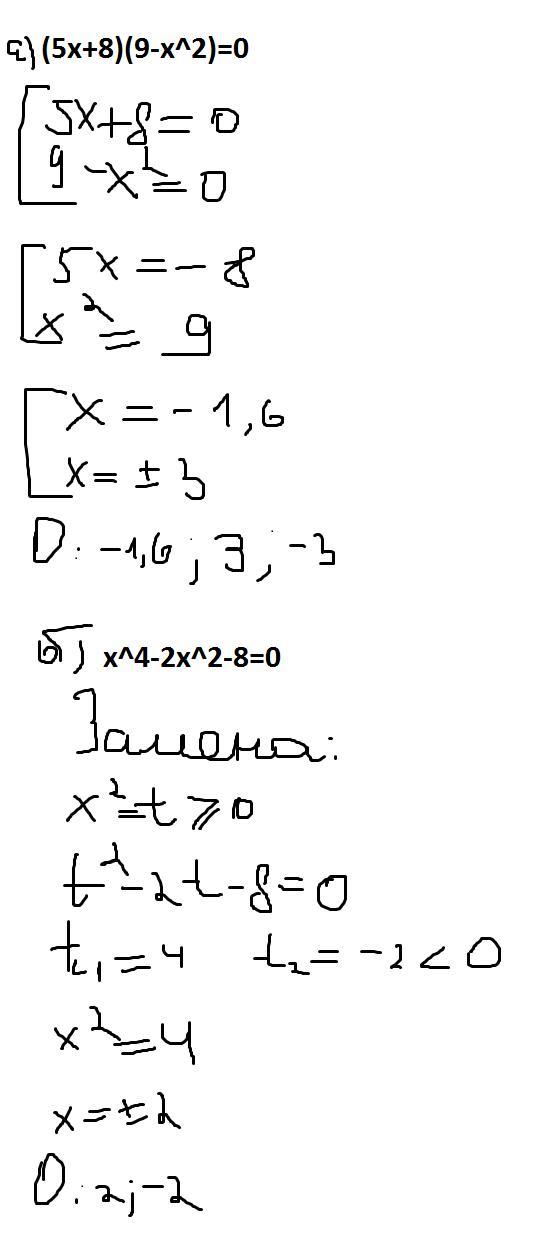 а) (5x+8)(9-x^2)=0
5x+8=0
9-x²=0
5x=-8
x²=9
x=-1,6
x=±3
О: -1,6; 3; -3
б) x^4-2x^2-8=0
Замена:
x²=t⩾0
t²-2t-8=0
t₁=4 t₂=-2<0
x²=4
x=±2
О: 2; -2